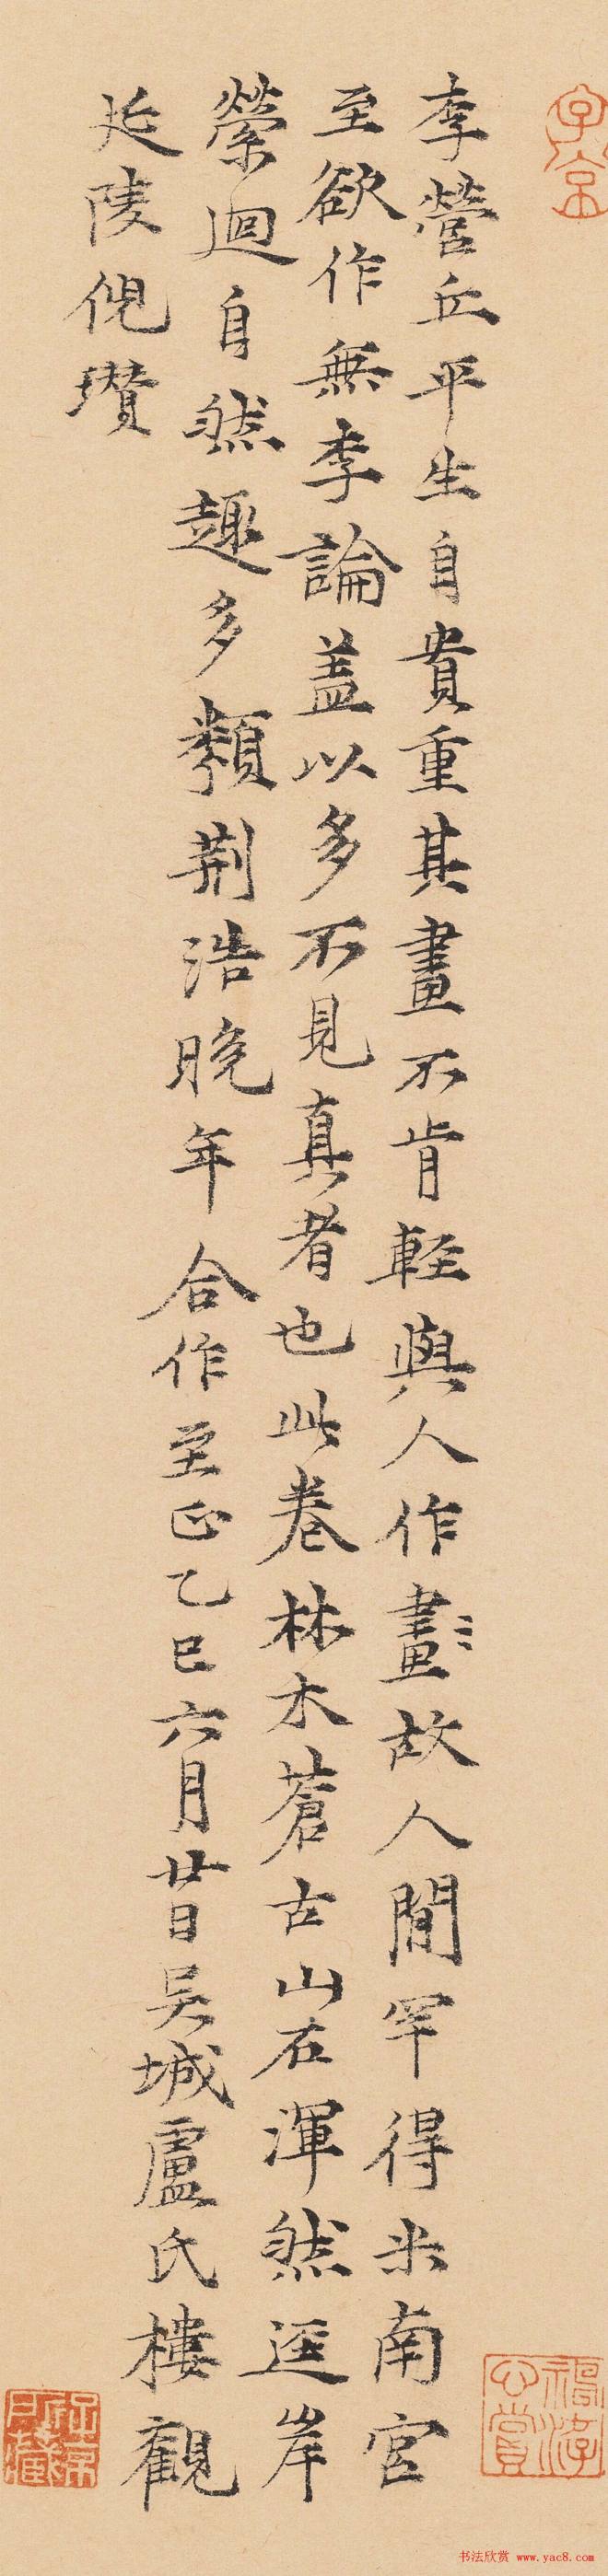 李營丘平生自貴重其畫不肯輕與人作畫〻故人間罕得米南宮
至欲作無李論蓋以多不見真者也此卷林木蒼古山石渾然逕岸
縈迴自然趣多類荆浩晚年合作至正乙巳六月廿日吴城盧氏樓觀
延陵倪瓚
书法欣赏 www.yac8.com